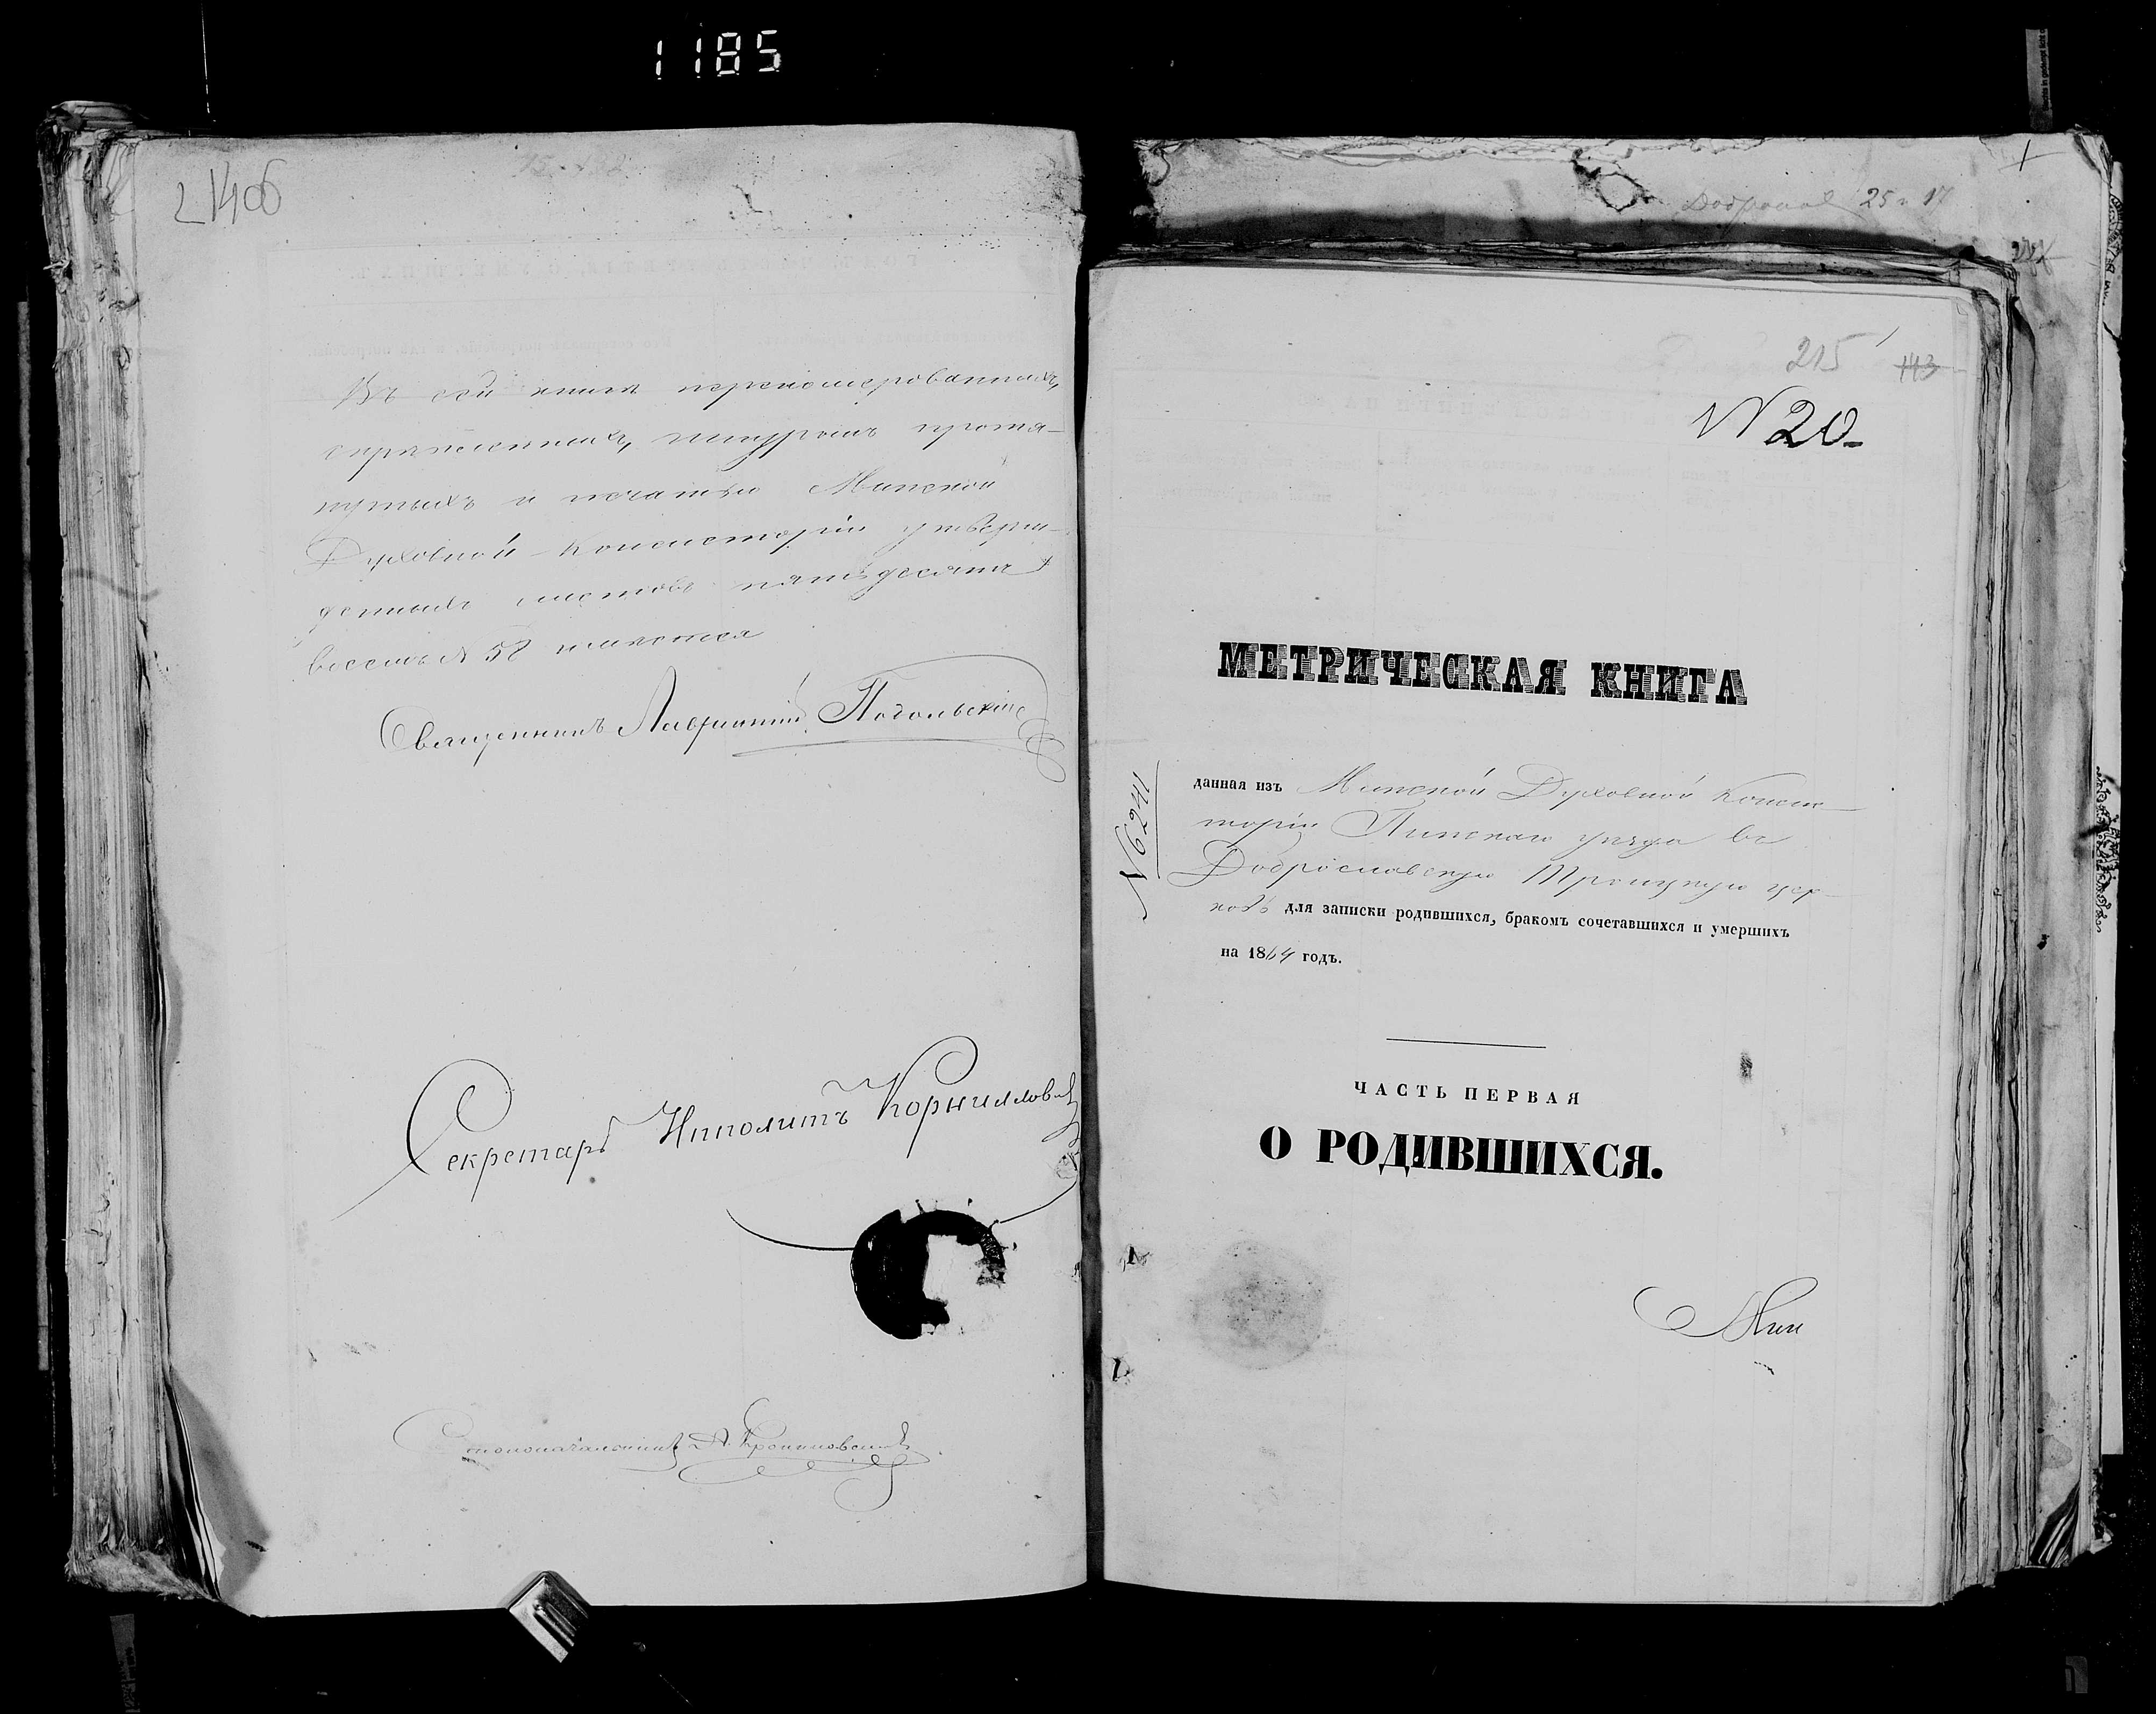 1185
214об
Въ сей книге переномерованныхъ,
скрѣпленныхъ, шнуромъ протя-
нутыхъ и печатью Минской
Духовной Консисторіи утверж-
денныхъ листовъ пятьдесятъ
восемь 58 имѣется
Священникъ Лаврентій Подольскій
Секретарь Ипполитъ Корнилович
Столоначальникъ
Доброслав 25 и 17
215
143
N 20
МЕТРИЧЕСКАЯ КНИГА
N 6241
данная изъ Минской Духовной Консис-
торіи Пинскаго уѣзда въ
Доброславскую Троицкую цер-
ковь для записки родившихся, бракомъ сочетавшихся и умершихъ
на 1864 годъ.
ЧАСТЬ ПЕРВАЯ
О РОДИВШИХСЯ.
Мин